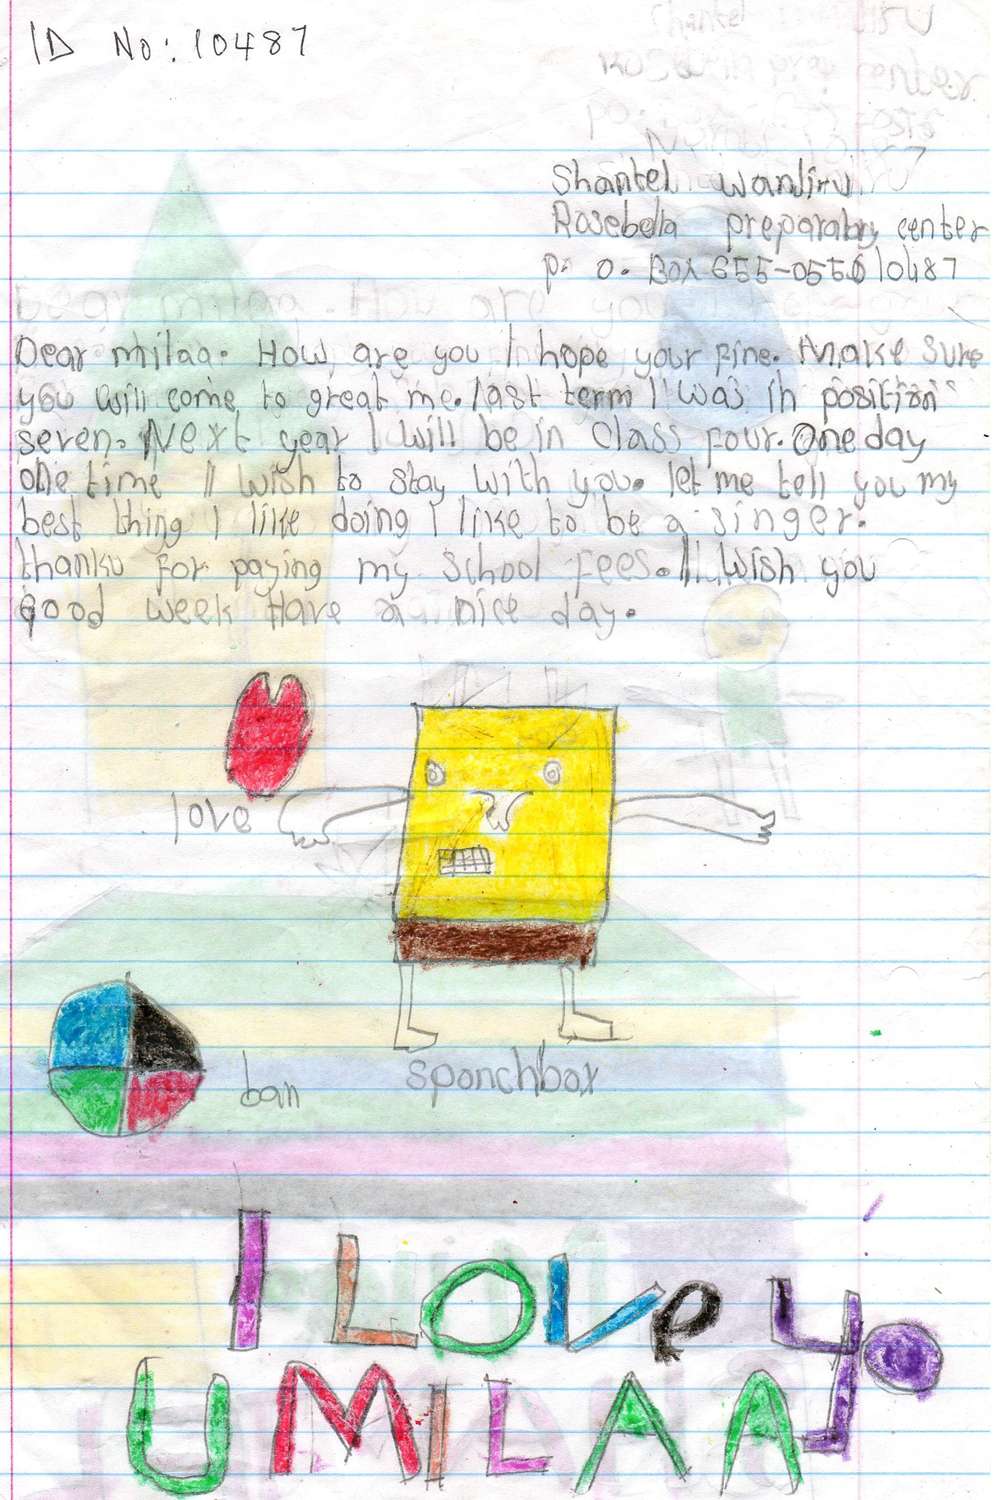 ID No: 10487
Shantel wanjiru
Rosebella preparatory center
p. o. Box 655-0550 10487
Dear milaa. How are you I hope your fine. Make sure
you will come to great me. last term I was in position
seven. Next year I will be in Class four. One day
one time I wish to stay with you. let me tell you my
best thing I like doing I like to be a singer.
thanku for paying my school fees. I wish you
good week Have a nice day.
love
ball
sponchbox
I LOVe yo
U MILAA